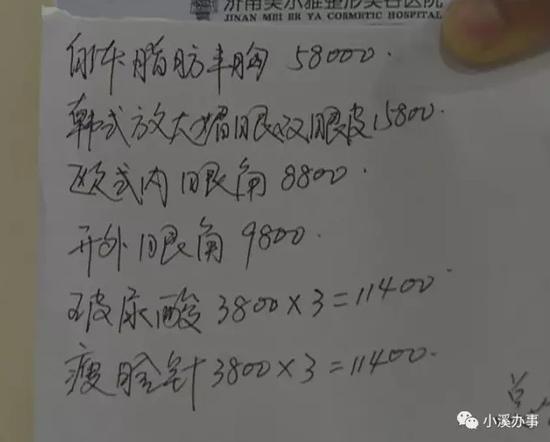 济南美尔雅整形美容医院
JINAN MEI ER YA COSMETIC HOSPITAL
自体脂肪丰胸 58000.
韩式放大媚眼双眼皮15800.
欧式内眼角 8800.
开外眼角 9800.
玻尿酸 3800×3=11400.
瘦脸针 3800×3=11400.
小溪办事